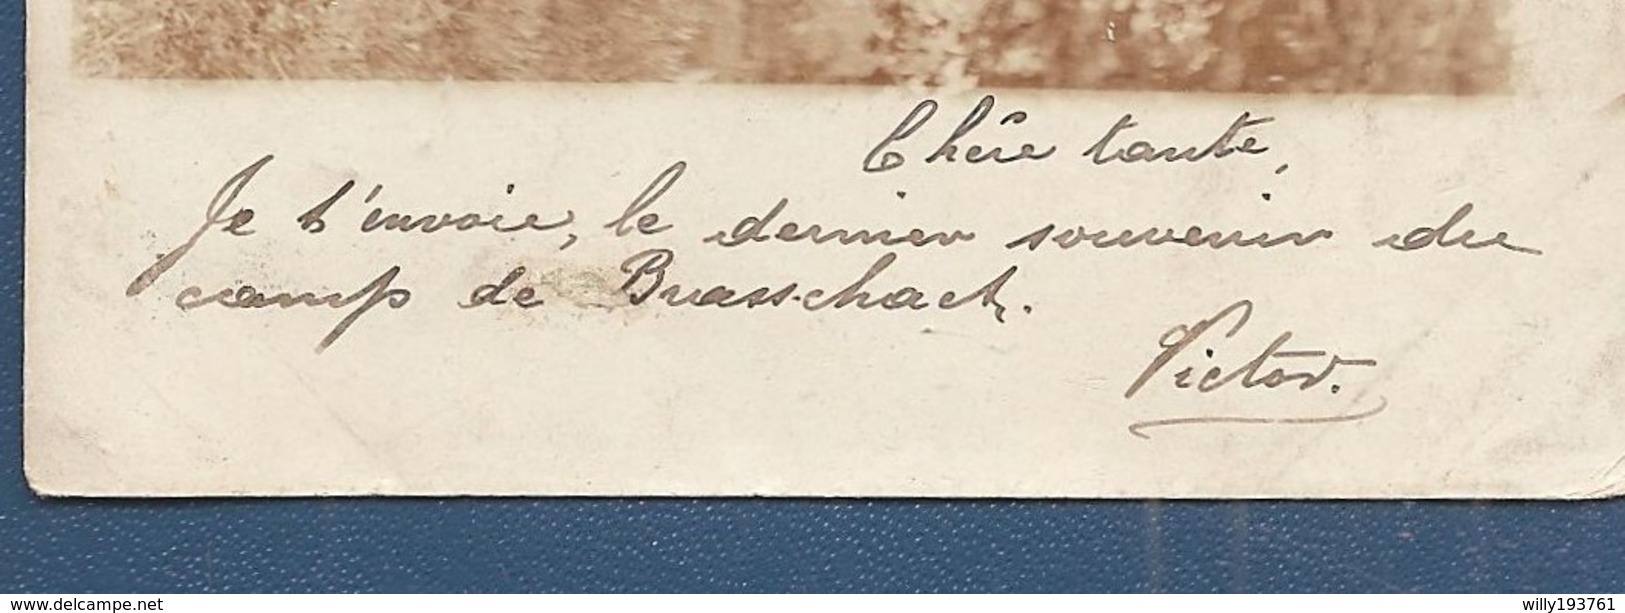 Chère tante,
Je t'envoie, le dernier souvenir du
camp de Brasschaet.
Victor.
www.delcampe.net
willy193761